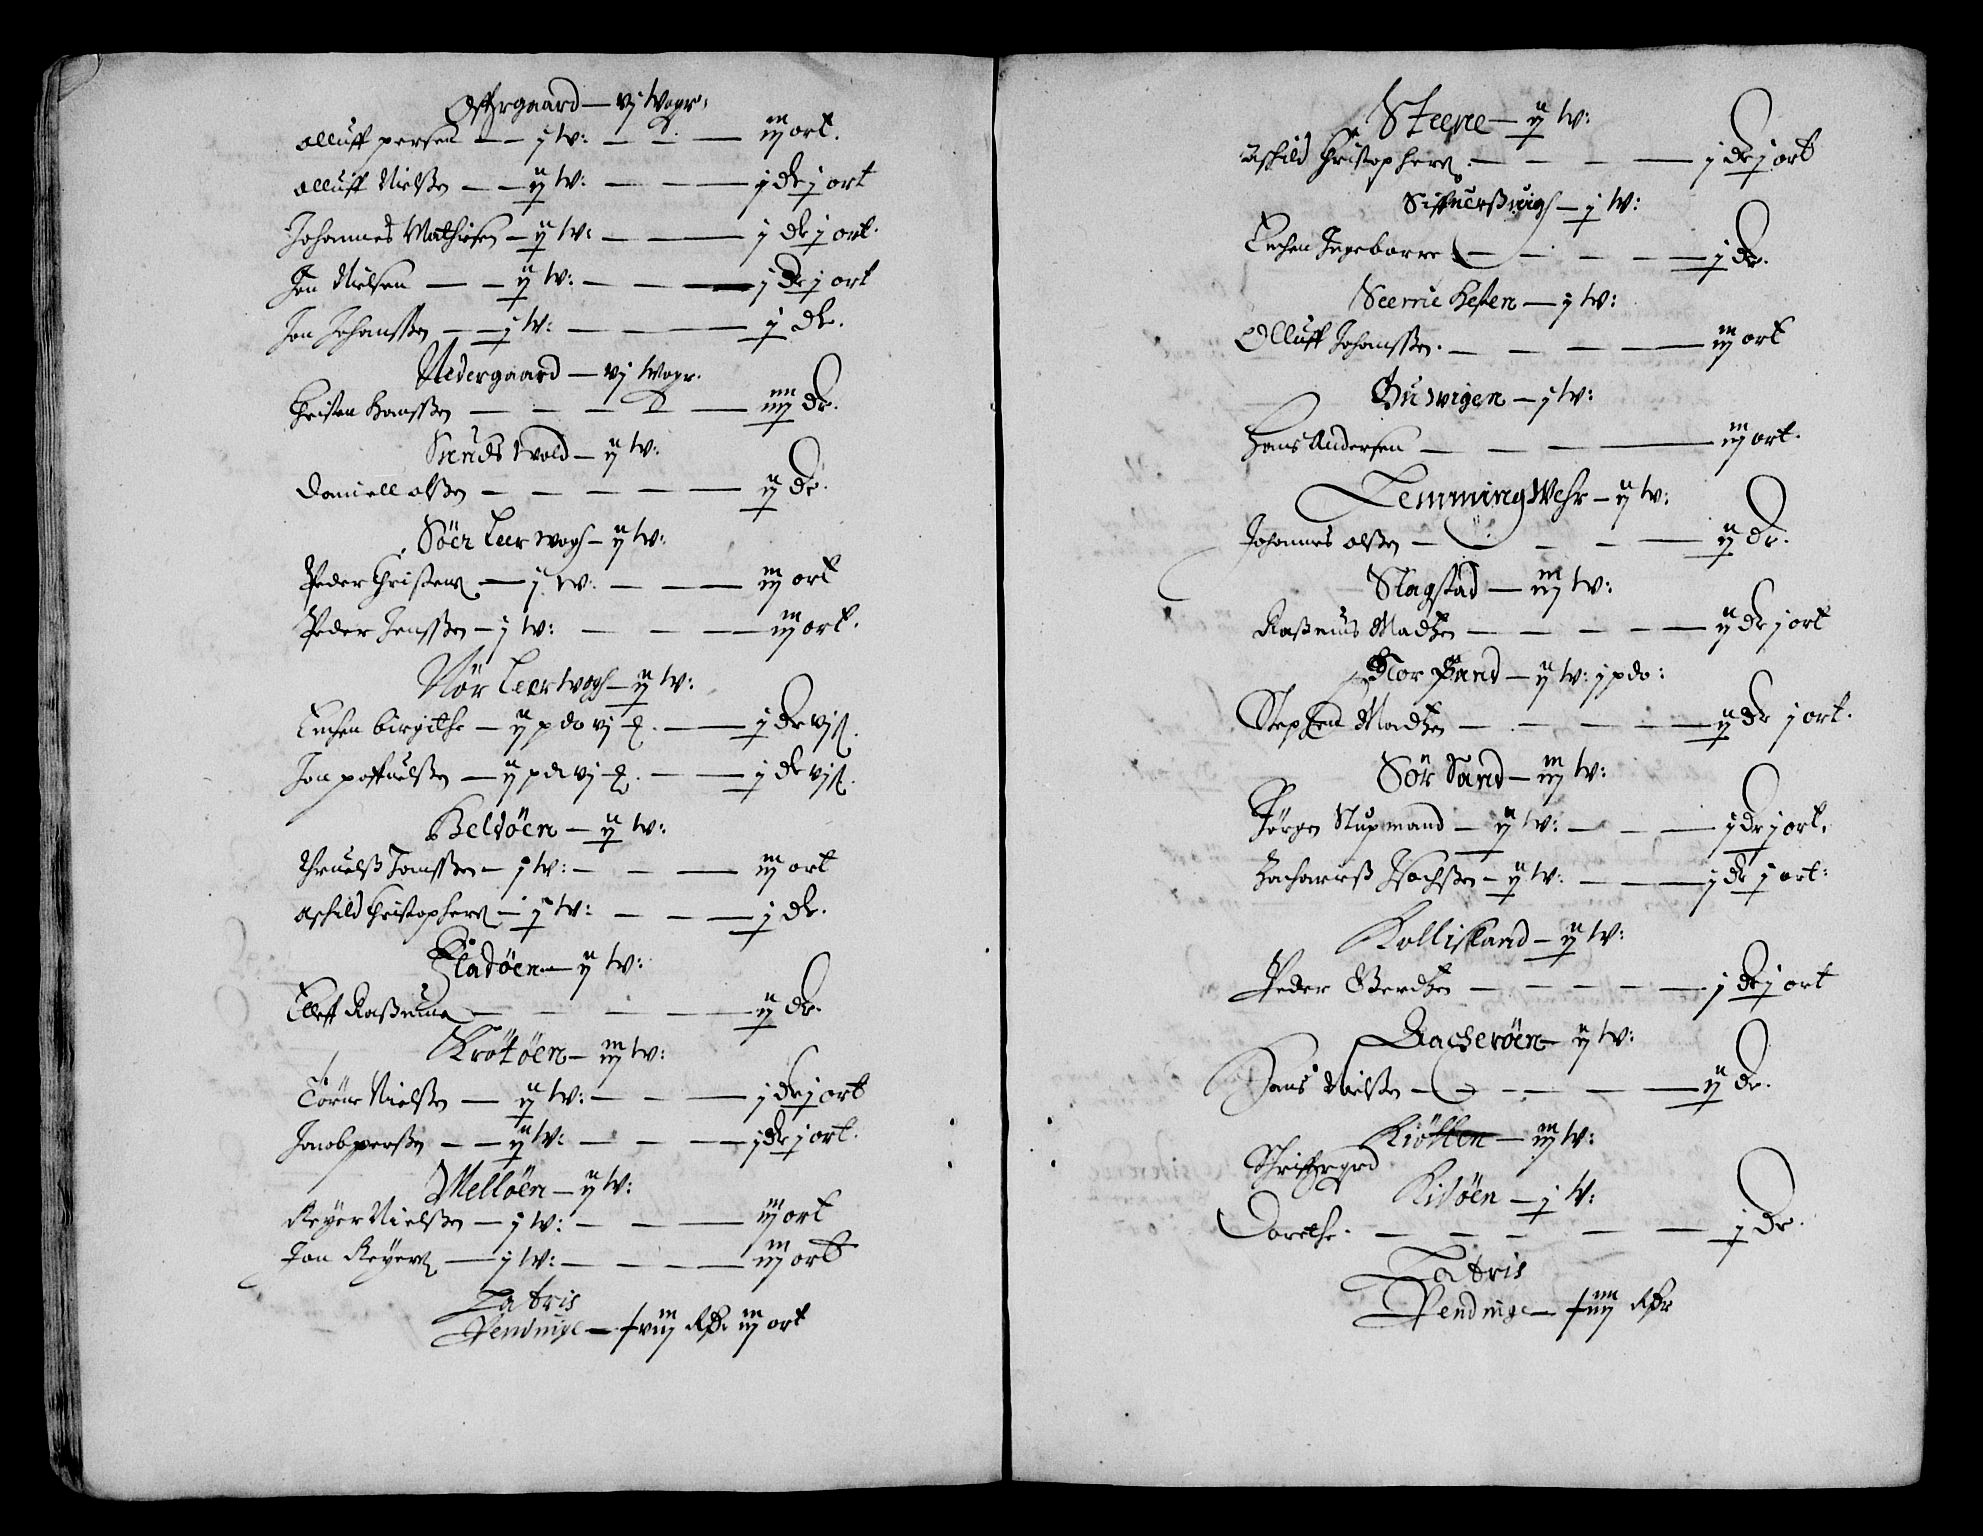 Østergaard — vj wogr:
olluff persen — — j w: — — — iij ort.
olluff Nielßen — — ij w: — — j dr j ort
Johannes Mathisen — ij w: — — j dr j ort.
Jen Nielsen — — ij w: — — j dr j ort
Jon Johanssen — — j w: — — — j dr.
Nedergaard — vj wogr.
Christen Hanssen — — — — — iiij dr.
Sunds wold — ij w:
Daniell olßen — — — — — ij dr.
Söer Leer wogh — ij w:
Peder Christens — j w: — — iij ort
Peder Jenssen — j w: — — — iij ort.
Nör Leerwogh — ij w:
Enchen birgithe — ij pdo vj — j dr vj ß.
Jon poffuelßen — ij pd vj — — j dr vj ß.
Beldöen — ij w:
Truelß Jonssen — j w: — — — iij ort
Aschild Christophers — j w: — — — j dr.
Fladöen — ij w:
Elleff Raßmus — — — — — ij dr.
Krötöen — iij w:
Törir Nielßen — ij w: — — — j dr j ort
Jacob perßen — — ij w: — — — j dr j ort.
Mellöen — ij w:
Reyer Nielßen — j w: — — — iij ort
Jon Reyers — j w: — — — — iij ort
Latris
Pendinge — xviij Rdr iij ort
Steene — ij w:
Aschild Christophers — — — — j dr j ort
Siffuerßuigh — j w:
Enchen Ingeborre — — — — — j dr.
Seerrie Hesten — j w:
Olluff Johanssen. — — — — iij ort
Gudvigen — j w:
Hans Andersen — — — — iij ort.
Lemming Wehr — ij w:
Johannes olßen — — — — — ij dr.
Stagstad — iij w:
Raßmus Madtzen — — — — — ij dr j ort
Nor Sand — ij w: j pdo:
Stephen Madtzen — — — — — ij dr j ort.
Sör Sand — iij w:
Jörgen Stupmand — ij w: — — — j dr j ort.
Zachariß Isachßen — ij w: — — — j dr j ort:
Kollisland — ij w:
Peder Gierdtzen — — — — — j dr j ort
Racheröen — ij w:
Hans Nielßen — — — — — ij dr.
Kiötten — iij w:
Schriffergrd
Kidöen — j w:
Dorethe. — — — — — j dr.
Latris
Pendinge — xiiij Rdr